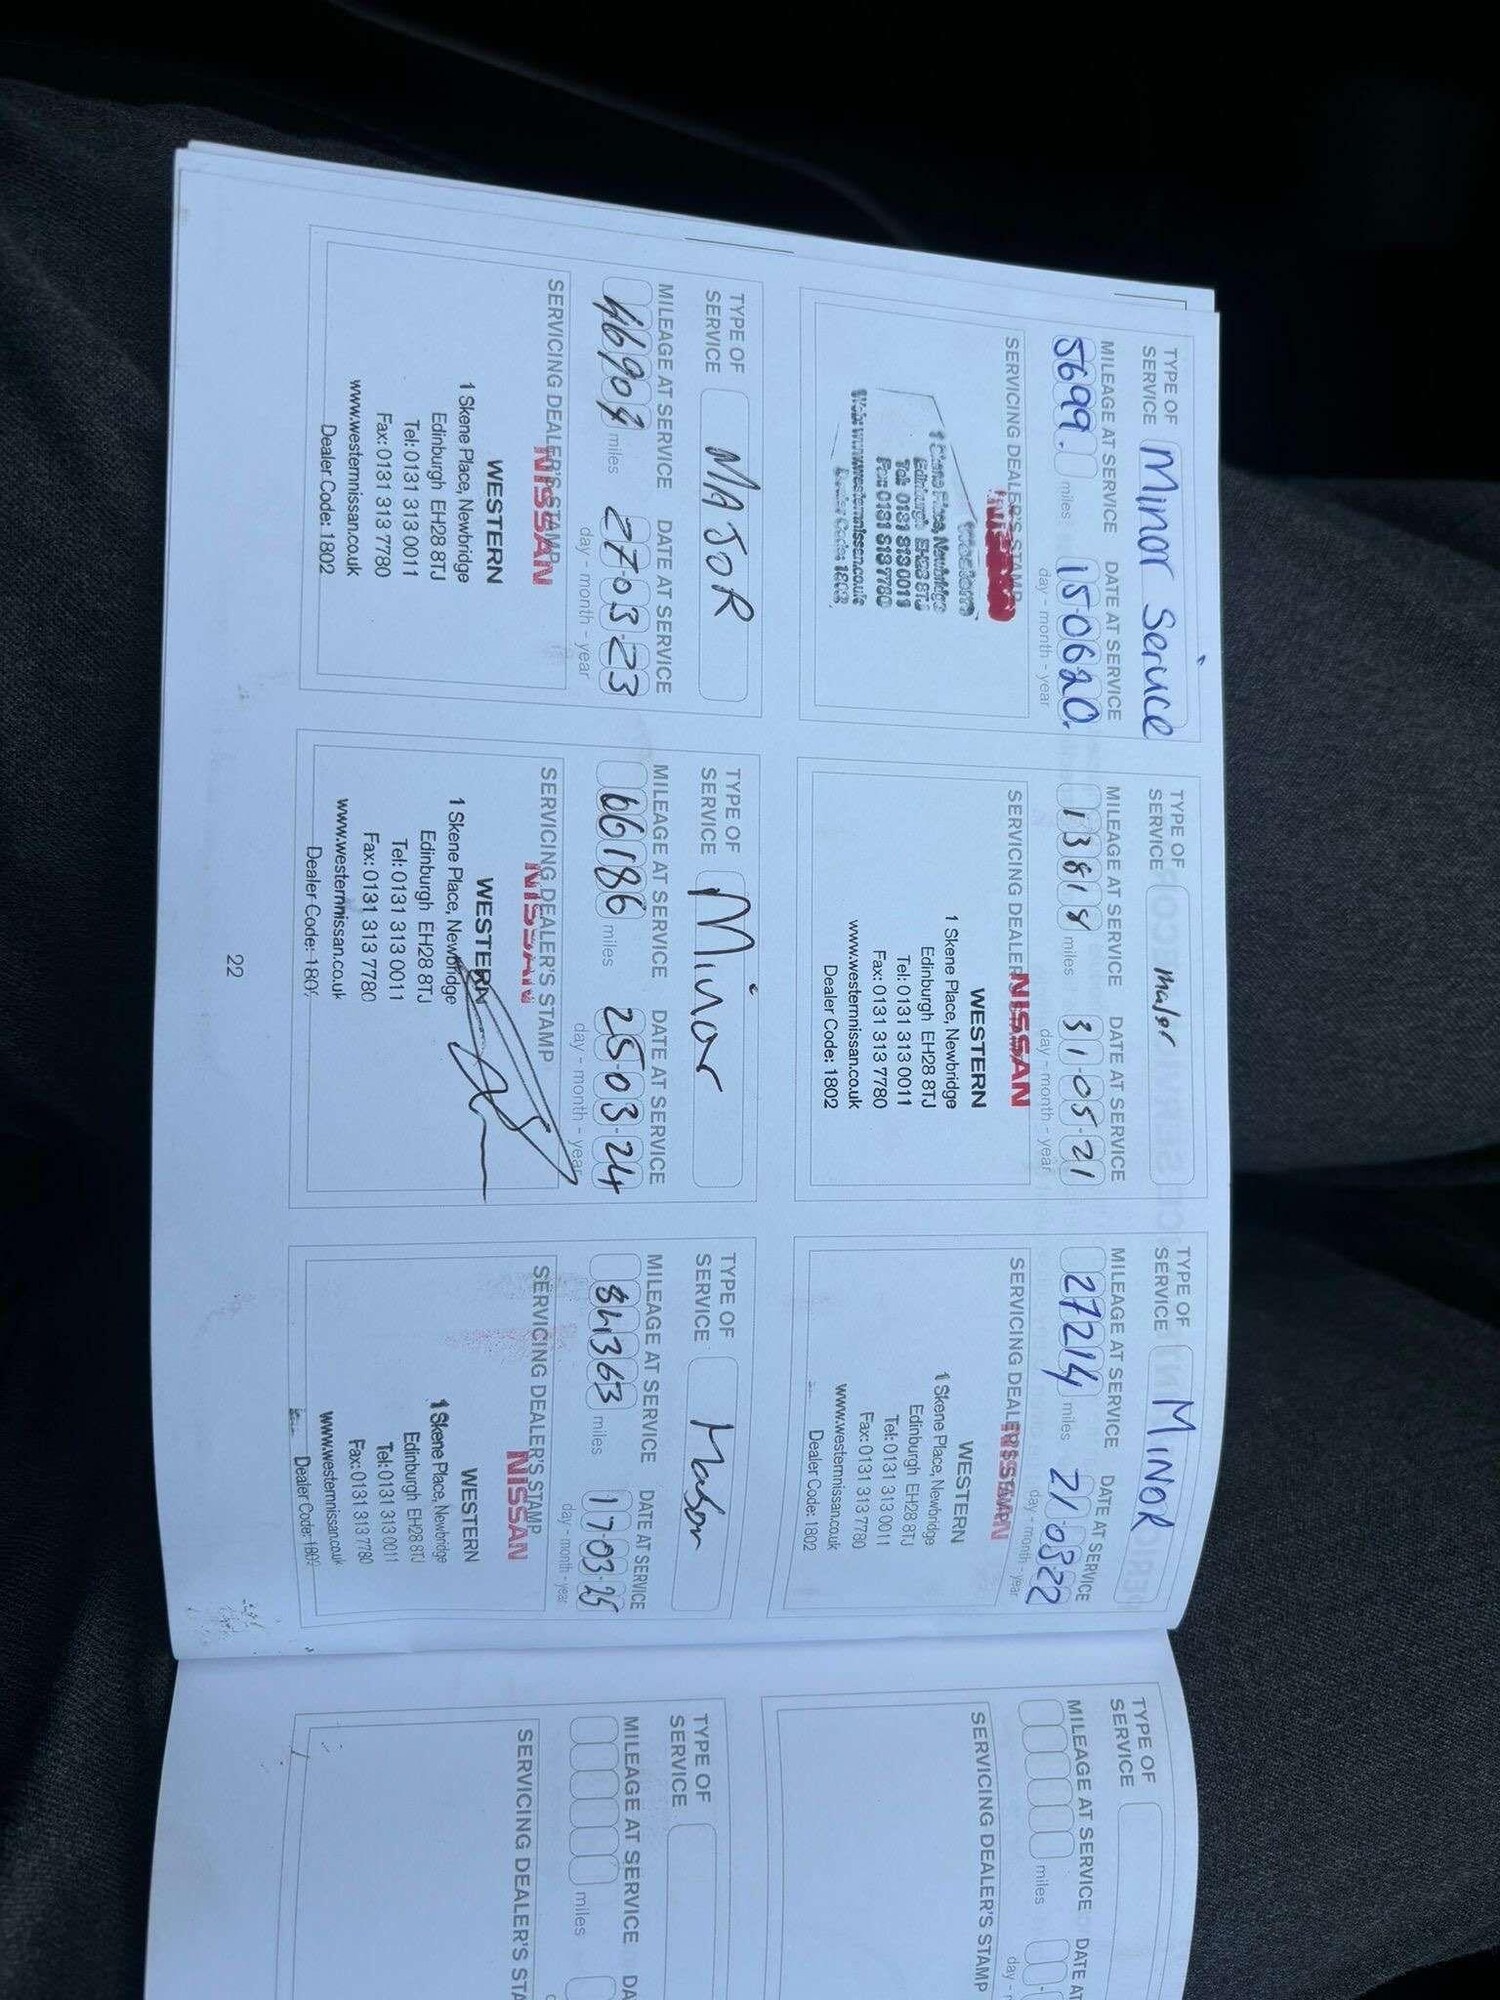 TYPE OF
SERVICE
Minor Service
MILEAGE AT SERVICE DATE AT SERVICE
5699. miles 15-06-20
day - month - year
SERVICING DEALER'S STAMP
NISSAN
Western
1 Skene Place, Newbridge
Edinburgh EH28 8TJ
Tel: 0131 313 0011
Fax: 0131 313 7780
Web: www.westernnissan.co.uk
Dealer Code: 1802
TYPE OF
SERVICE
major
MILEAGE AT SERVICE DATE AT SERVICE
13818 miles 31-05-21
day - month - year
SERVICING DEALER
NISSAN
WESTERN
1 Skene Place, Newbridge
Edinburgh EH28 8TJ
Tel: 0131 313 0011
Fax: 0131 313 7780
www.westernnissan.co.uk
Dealer Code: 1802
TYPE OF
SERVICE
MINOR
MILEAGE AT SERVICE DATE AT SERVICE
27214 miles 21-03-22
day - month - year
SERVICING DEALER'S STAMP
NISSAN
WESTERN
1 Skene Place, Newbridge
Edinburgh EH28 8TJ
Tel: 0131 313 0011
Fax: 0131 313 7780
www.westernnissan.co.uk
Dealer Code: 1802
TYPE OF
SERVICE
MAJOR
MILEAGE AT SERVICE DATE AT SERVICE
46909 miles 27-03-23
day - month - year
SERVICING DEALER'S STAMP
NISSAN
WESTERN
1 Skene Place, Newbridge
Edinburgh EH28 8TJ
Tel: 0131 313 0011
Fax: 0131 313 7780
www.westernnissan.co.uk
Dealer Code: 1802
TYPE OF
SERVICE
Minor
MILEAGE AT SERVICE DATE AT SERVICE
66186 miles 25-03-24
day - month - year
SERVICING DEALER'S STAMP
NISSAN
WESTERN
1 Skene Place, Newbridge
Edinburgh EH28 8TJ
Tel: 0131 313 0011
Fax: 0131 313 7780
www.westernnissan.co.uk
Dealer Code: 180
TYPE OF
SERVICE
Major
MILEAGE AT SERVICE DATE AT SERVICE
84363 miles 17-03-25
day - month - year
SERVICING DEALER'S STAMP
NISSAN
WESTERN
1 Skene Place, Newbridge
Edinburgh EH28 8TJ
Tel: 0131 313 0011
Fax: 0131 313 7780
www.westernnissan.co.uk
Dealer Code: 1802
22
TYPE OF
SERVICE
MILEAGE AT SERVICE DATE AT
miles
day -
SERVICING DEALER'S STAMP
TYPE OF
SERVICE
MILEAGE AT SERVICE DA
miles
SERVICING DEALER'S STA